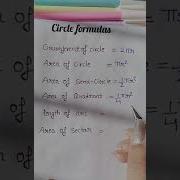 Circle formulas
Circumference of circle = 2πr
Area of Circle = πr²
Area of Semi-Circle = 1/2 πr²
Area of Quadrant = 1/4 πr²
length of arc =
Area of Sector =